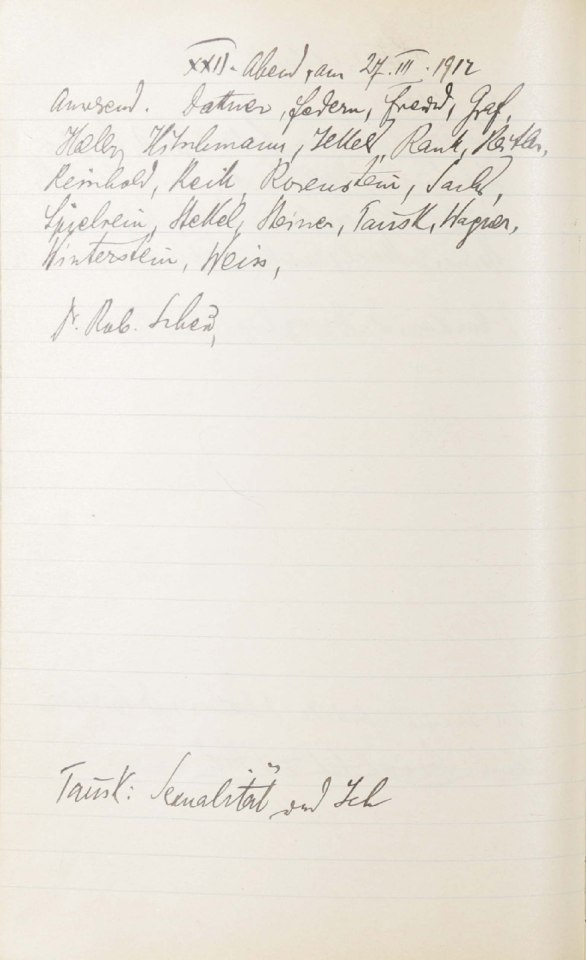 XXII. Abend, am 27. III. 1912
Anwesend. Dattner, Federn, Freud, Graf,
Heller, Hitschmann, Jekels, Rank, Reitler,
Reinhold, Reik, Rosenstein, Sachs,
Spielrein, Stekel, Steiner, Tausk, Wagner,
Winterstein, Weiss,
Dr. Rob. Scheu,
Tausk: Sexualität und Ich